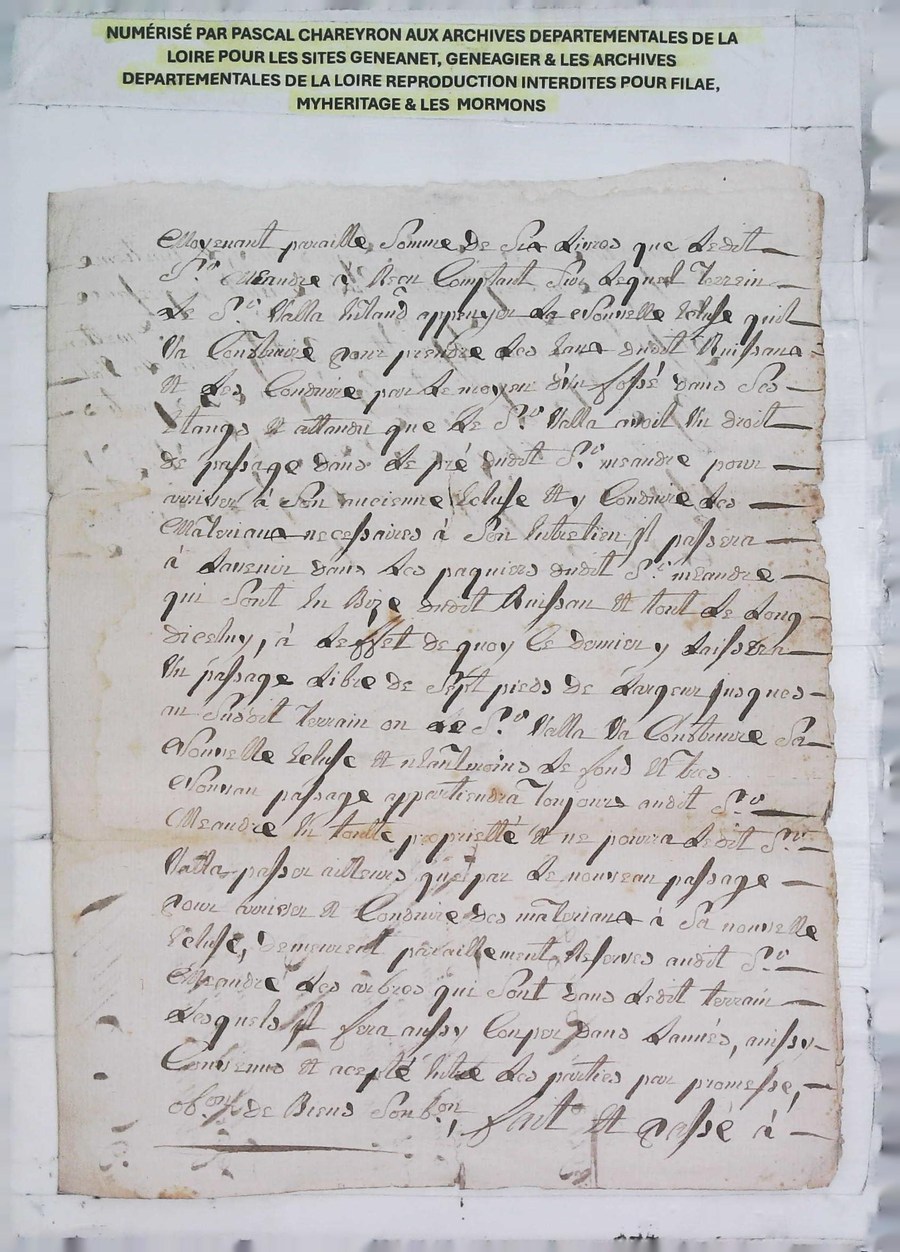 NUMÉRISÉ PAR PASCAL CHAREYRON AUX ARCHIVES DEPARTEMENTALES DE LA
LOIRE POUR LES SITES GENEANET, GENEAGIER & LES ARCHIVES
DEPARTEMENTALES DE LA LOIRE REPRODUCTION INTERDITES POUR FILAE,
MYHERITAGE & LES MORMONS
Moyenant paraille Somme de Six Livres que Ledit
Sr. Meandre à Reçu Comptant Sur Lequel terrein
Le Sr. Valla Entand appuyer La Nouvelle Ecluse quil
Va Construire pour prendre Les Eaux dudit Ruissaux
Et Les Conduire par Le moyen d'un fossé dans Ses
Etangs Et attandu que Le Sr. Valla avoit Un droit
de passage dans Le pré dudit Sr. meandre pour
arriver à Son ancienne Ecluse Et y Conduire Les
Materiaux necessaires à Son Entretien jl passera
à Lavenir dans Les paquiers dudit Sr. meandre
qui Sont En Bize dudit Ruissau Et tout Le Long
diceluy, à Leffet de quoy Ce dernier y Laissera
Un passage Libre de Sept pieds de Largeur jusques
au Susdit terrain ou Le Sr. Valla Va Construire Sa
Nouvelle Ecluse Et néanmoins Le fond Et tres
Nouvau passage appartiendra toujours audit Sr.
Meandre En toutte proprietté Et ne pourra Ledit Sr.
Valla passer ailleurs que par Le nouveau passage
pour arriver Et Conduire Les materiaux à Sa nouvelle
Ecluse, demeurent paraillement Reservés audit Sr.
Meandre Les arbres qui Sont dans Ledit terrain
Lesquels jl fera aussy Couper dans Lannés, ainsy
Convenus Et acepté Entre Les parties par promesse,
obon. de Biens Soubon, fait Et passé à